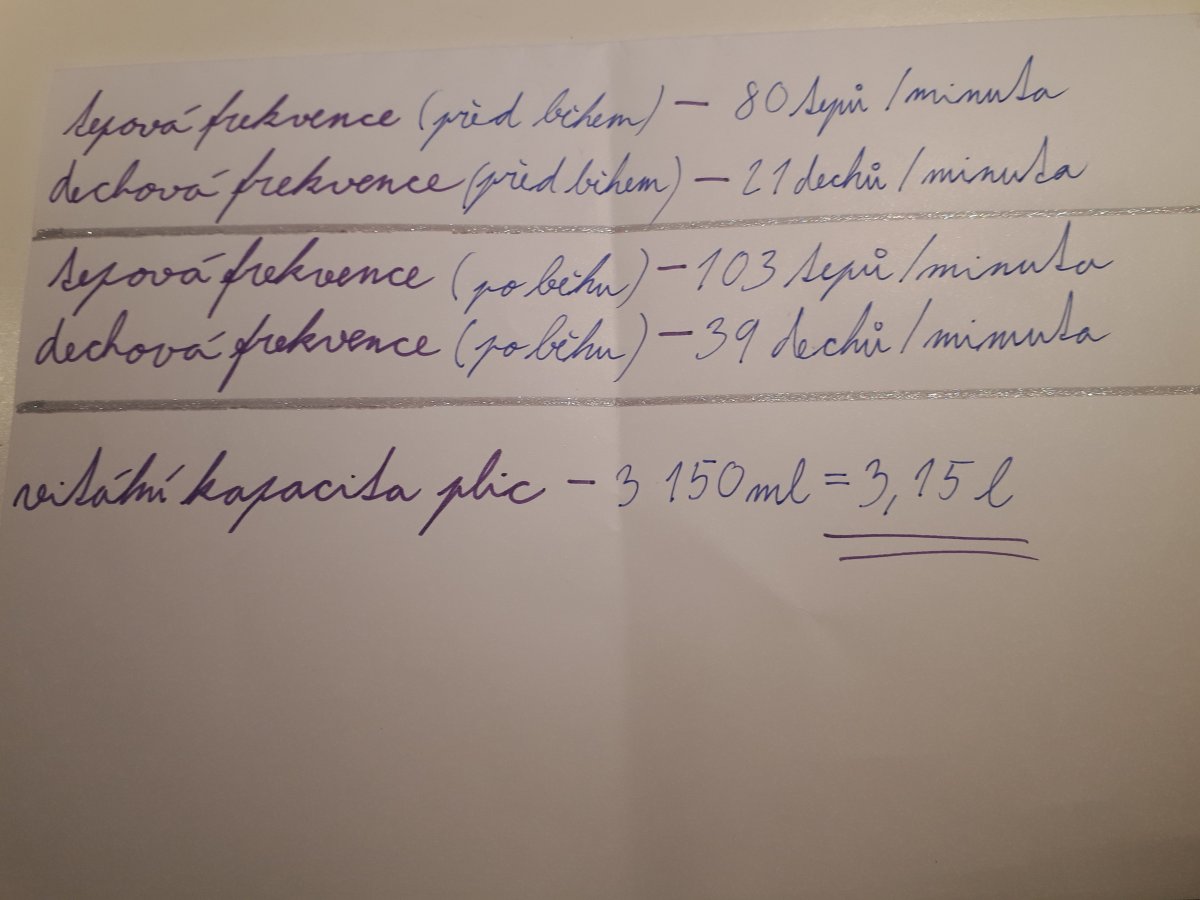 tepová frekvence (před během) – 80 tepů/minuta
dechová frekvence (před během) – 21 dechů/minuta
tepová frekvence (po běhu) – 103 tepů/minuta
dechová frekvence (po běhu) – 39 dechů/minuta
vitální kapacita plic – 3 150 ml = 3,15 l